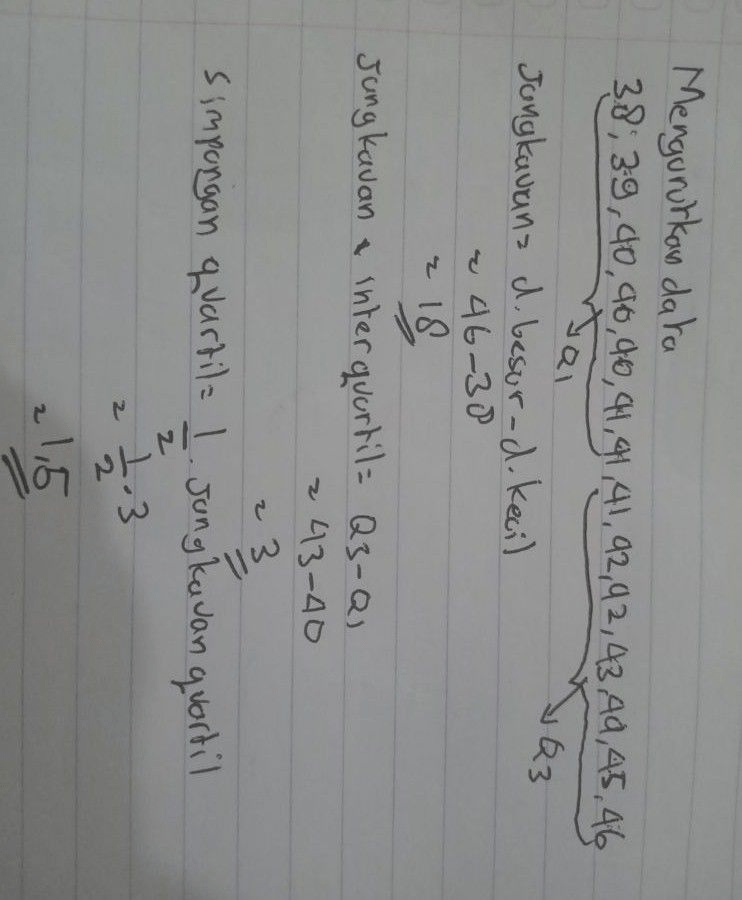 Mengurutkan data
38, 39, 40, 40, 40, 41, 41, 41, 42, 42, 43, 44, 45, 46
Q1
Q3
Jangkauan = d. besar - d. kecil
= 46 - 38
= 18
Jangkauan interquartil = Q3 - Q1
= 43 - 40
= 3
Simpangan quartil = 1/2 . Jangkauan quartil
= 1/2 . 3
= 1,5